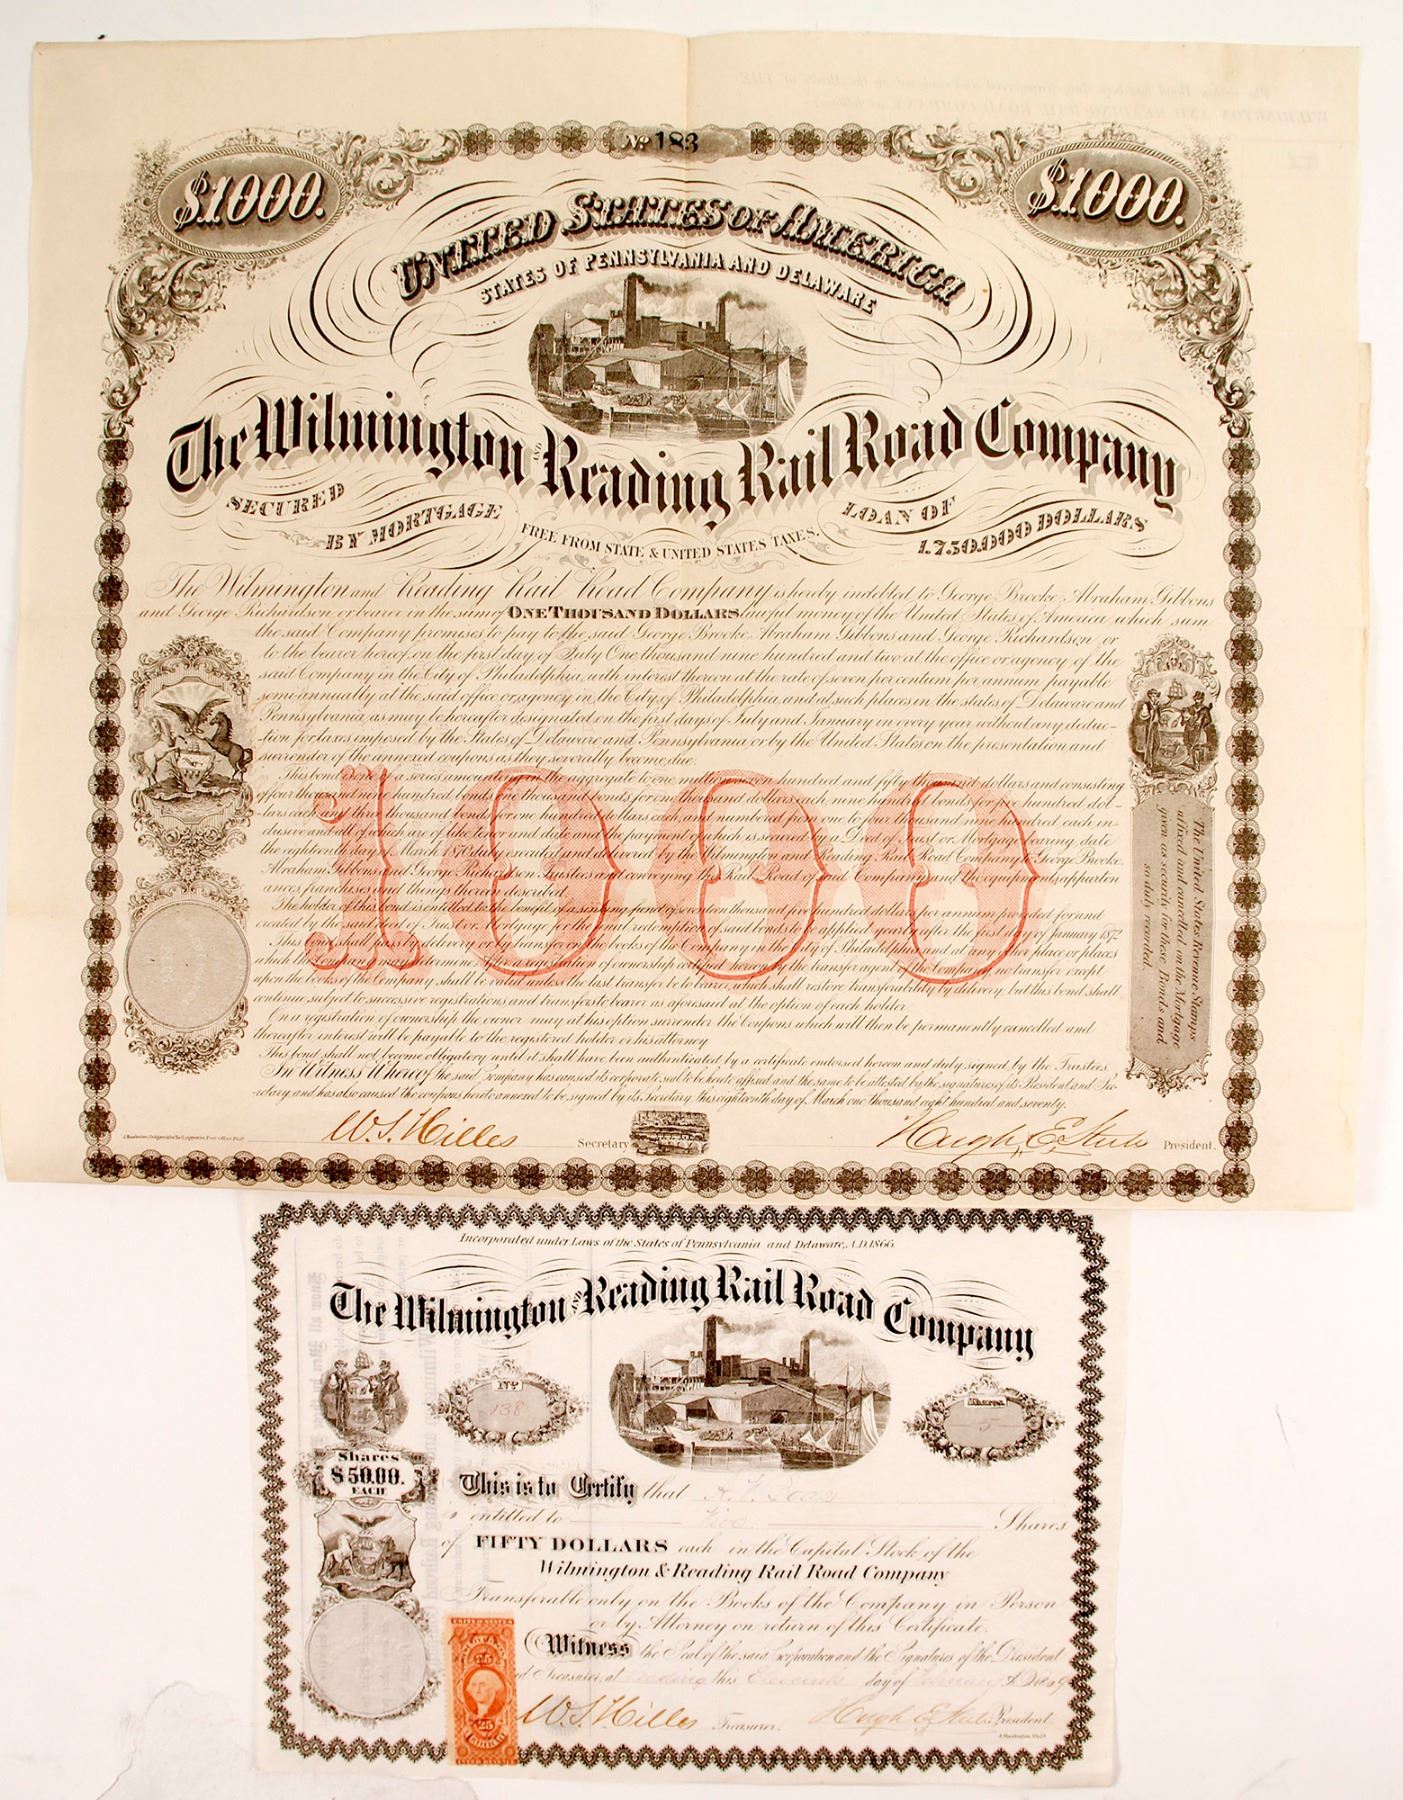 No 183
$1000.
$1000.
UNITED STATES OF AMERICA
STATES OF PENNSYLVANIA AND DELAWARE
The Wilmington AND Reading Rail Road Company
SECURED BY MORTGAGE
FREE FROM STATE & UNITED STATES TAXES.
LOAN OF 1.750.000 DOLLARS
The Wilmington and Reading Rail Road Company is hereby indebted to George Brooke, Abraham Gibbons
and George Richardson or bearer in the sum of ONE THOUSAND DOLLARS lawful money of the United States of America which sum
the said Company promises to pay to the said George Brooke Abraham Gibbons and George Richardson, or
to the bearer hereof, on the first day of July One thousand nine hundred and two at the office or agency of the
said Company in the City of Philadelphia, with interest thereon at the rate of seven per centum per annum payable
semi-annually at the said office or agency in the City of Philadelphia, and at such places in the states of Delaware and
Pennsylvania as may be hereafter designated on the first days of July and January in every year without any deduc-
-tion for taxes imposed by the States of Delaware and Pennsylvania or by the United States on the presentation and
surrender of the annexed coupons as they severally become due.
This bond is one of a series amounting in the aggregate to one million seven hundred and fifty thousand dollars and consisting
of four thousand nine hundred bonds, one thousand bonds for one thousand dollars each, nine hundred bonds for five hundred dol-
lars each and three thousand bonds for one hundred dollars each, and numbered from one to four thousand nine hundred each in-
clusive and all of which are of like tenor and date and the payment of which is secured by a Deed of Trust or Mortgage bearing date
the eighteenth day of March 1870 duly executed and delivered by the Wilmington and Reading Rail Road Company to George Brooke
Abraham Gibbons and George Richardson Trustees and conveying the Rail Road of said Company and the equipments, apparten
ances franchises and things therein described.
The holder of this bond is entitled to the benefit of a sinking fund of seventeen thousand five hundred dollars per annum provided for and
created by the said deed of Trust or Mortgage for the final redemption of said bonds to be applied yearly after the first day of January 1872
This bond shall pass by delivery or by transfer on the books of the Company in the City of Philadelphia and at any other place or places
which the Company may determine. After a registration of ownership certified hereon by the transfer agent of the Company no transfer except
upon the books of the Company shall be valid unless the last transfer be to bearer, which shall restore transferability by delivery, but this bond shall
continue subject to successive registrations and transfers to bearer as aforesaid at the option of each holder.
On a registration of ownership the owner may at his option surrender the Coupons which will then be permanently cancelled and
thereafter interest will be payable to the registered holder or his attorney
This bond shall not become obligatory until it shall have been authenticated by a certificate endorsed hereon and duly signed by the Trustees.
In Witness Whereof the said Company has caused its corporate seal to be hereto affixed and the same to be attested by the signatures of its President and Sec-
-retary and has also caused the coupons hereto annexed to be signed by its Secretary this eighteenth day of March one thousand eight hundred and seventy.
1000
The United States Revenue Stamps
affixed and cancelled on the Mortgage
given as security for these Bonds and
so duly recorded.
W.S. Hilles
Secretary
Hugh E. Steele
President.
Incorporated under Laws of the States of Pennsylvania and Delaware, A.D. 1866.
The Wilmington AND Reading Rail Road Company
No 138
Shares 5
Shares
$50.00.
EACH
This is to Certify that
entitled to Five Shares
of FIFTY DOLLARS each in the Capital Stock of the
Wilmington & Reading Rail Road Company
Transferable only on the Books of the Company in Person
or by Attorney on return of this Certificate.
Witness the Seal of the said Corporation and the Signatures of the President
and Treasurer at Reading this Eleventh day of February A.D. 1869
25
25
W.S. Hilles
Treasurer
Hugh E. Steele
President.